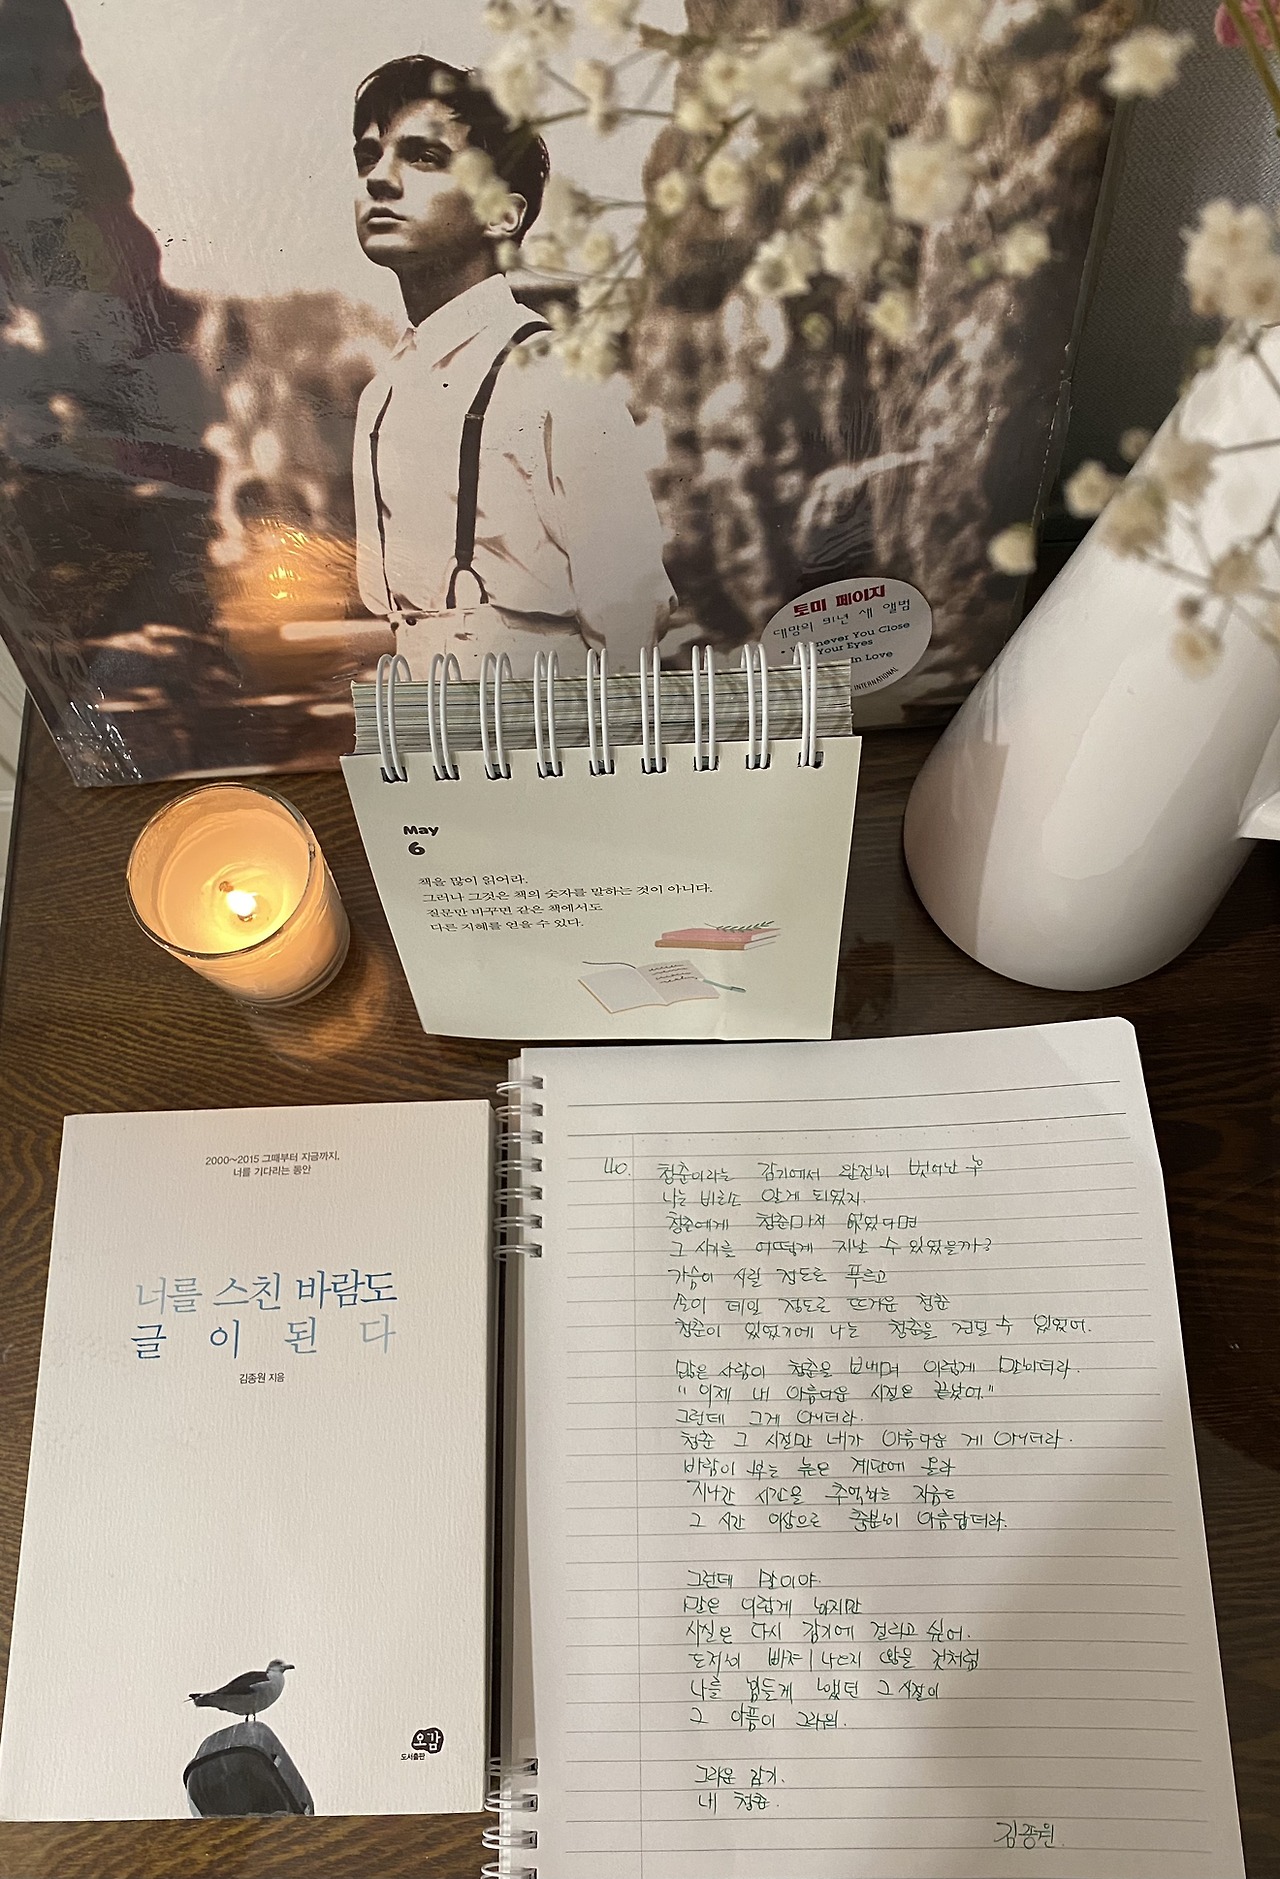 토미 페이지
대망의 91년 새 앨범
never You Close
Your Eyes
In Love
INTERNATIONAL
May
6
책을 많이 읽어라.
그러나 그것은 책의 숫자를 말하는 것이 아니다.
질문만 바꾸면 같은 책에서도
다른 지혜를 얻을 수 있다.
2000~2015 그때부터 지금까지,
너를 기다리는 동안
너를 스친 바람도
글이 된다
김종원 지음
오감
도서출판
청춘이라는 감기에서 완전히 벗어난 후
나는 비로소 알게 되었지.
청춘에게 청춘마저 없었다면
그 시기를 어떻게 지날 수 있었을까?
가슴이 시릴 정도로 푸르고
손이 데일 정도로 뜨거운 청춘
청춘이 있었기에 나는 청춘을 견딜 수 있었어.
많은 사람이 청춘을 보내며 이렇게 말하더라.
"이제 내 아름다운 시절은 끝났어."
그런데 그게 아니더라.
청춘 그 시절만 내가 아름다운 게 아니더라.
바람이 부는 높은 계단에 올라
지나간 시간을 추억하는 지금도
그 시간 이상으로 충분히 아름답더라.
그런데 말이야.
말은 이렇게 하지만
사실은 다시 감기에 걸리고 싶어.
도저히 빠져나오지 않을 것처럼
나를 힘들게 했던 그 시절이
그 아픔이 그리워.
그리운 감기.
내 청춘.
김종원.